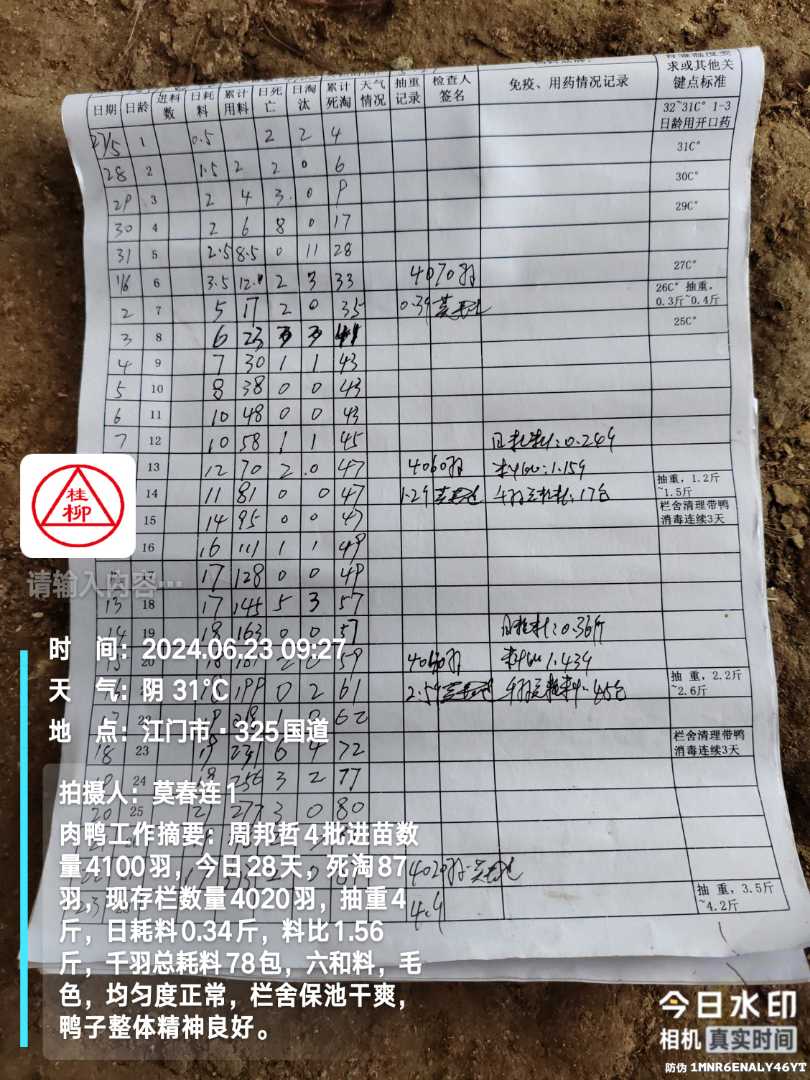 求或其他关
键点标准
日期 日龄 进料数 日耗料 累计用料 日死亡 日淘汰 累计死淘 天气情况 抽重记录 检查人签名 免疫、用药情况记录
32~31C° 1-3
日龄用开口药
27/5 1 0.5 2 2 4 31C°
28 2 1.5 2 2 0 6 30C°
29 3 2 4 3 0 9 29C°
30 4 2 6 8 0 17
31 5 2.5 8.5 0 11 28 27C°
1/6 6 3.5 12 2 3 33 4070羽
26C° 抽重,
0.3斤~0.4斤
2 7 5 17 2 0 35 0.39
3 8 6 23 3 3 41 25C°
4 9 7 30 1 1 43
5 10 8 38 0 0 43
6 11 10 48 0 0 43
7 12 10 58 1 1 45 日耗料:0.249
13 12 70 2 0 47 4060羽 1.159
抽重, 1.2斤
~1.5斤
14 11 81 0 0 47 1.29 17包
15 14 95 0 0 47
栏舍清理带鸭
消毒连续3天
16 16 111 1 1 49
17 17 128 0 0 49
13 18 17 145 5 3 57
14 19 18 163 0 0 57 日耗料:0.36斤
20 59 4040羽 1.439
199 0 2 61 2.59 45包
抽重, 2.2斤
~2.6斤
22 62
18 23 6 4 72
栏舍清理带鸭
消毒连续3天
24 256 3 2 77
20 25 277 3 0 80
4020羽
4.9
抽重, 3.5斤
~4.2斤
桂柳
请输入内容…
时 间:2024.06.23 09:27
天 气:阴 31℃
地 点:江门市·325国道
拍摄人:莫春连1
肉鸭工作摘要:周邦哲4批进苗数
量4100羽,今日28天,死淘87
羽,现存栏数量4020羽,抽重4
斤,日耗料0.34斤,料比1.56
斤,千羽总耗料78包,六和料,毛
色,均匀度正常,栏舍保池干爽,
鸭子整体精神良好。
今日水印
相机 真实时间
防伪 1MNR6ENALY46YT